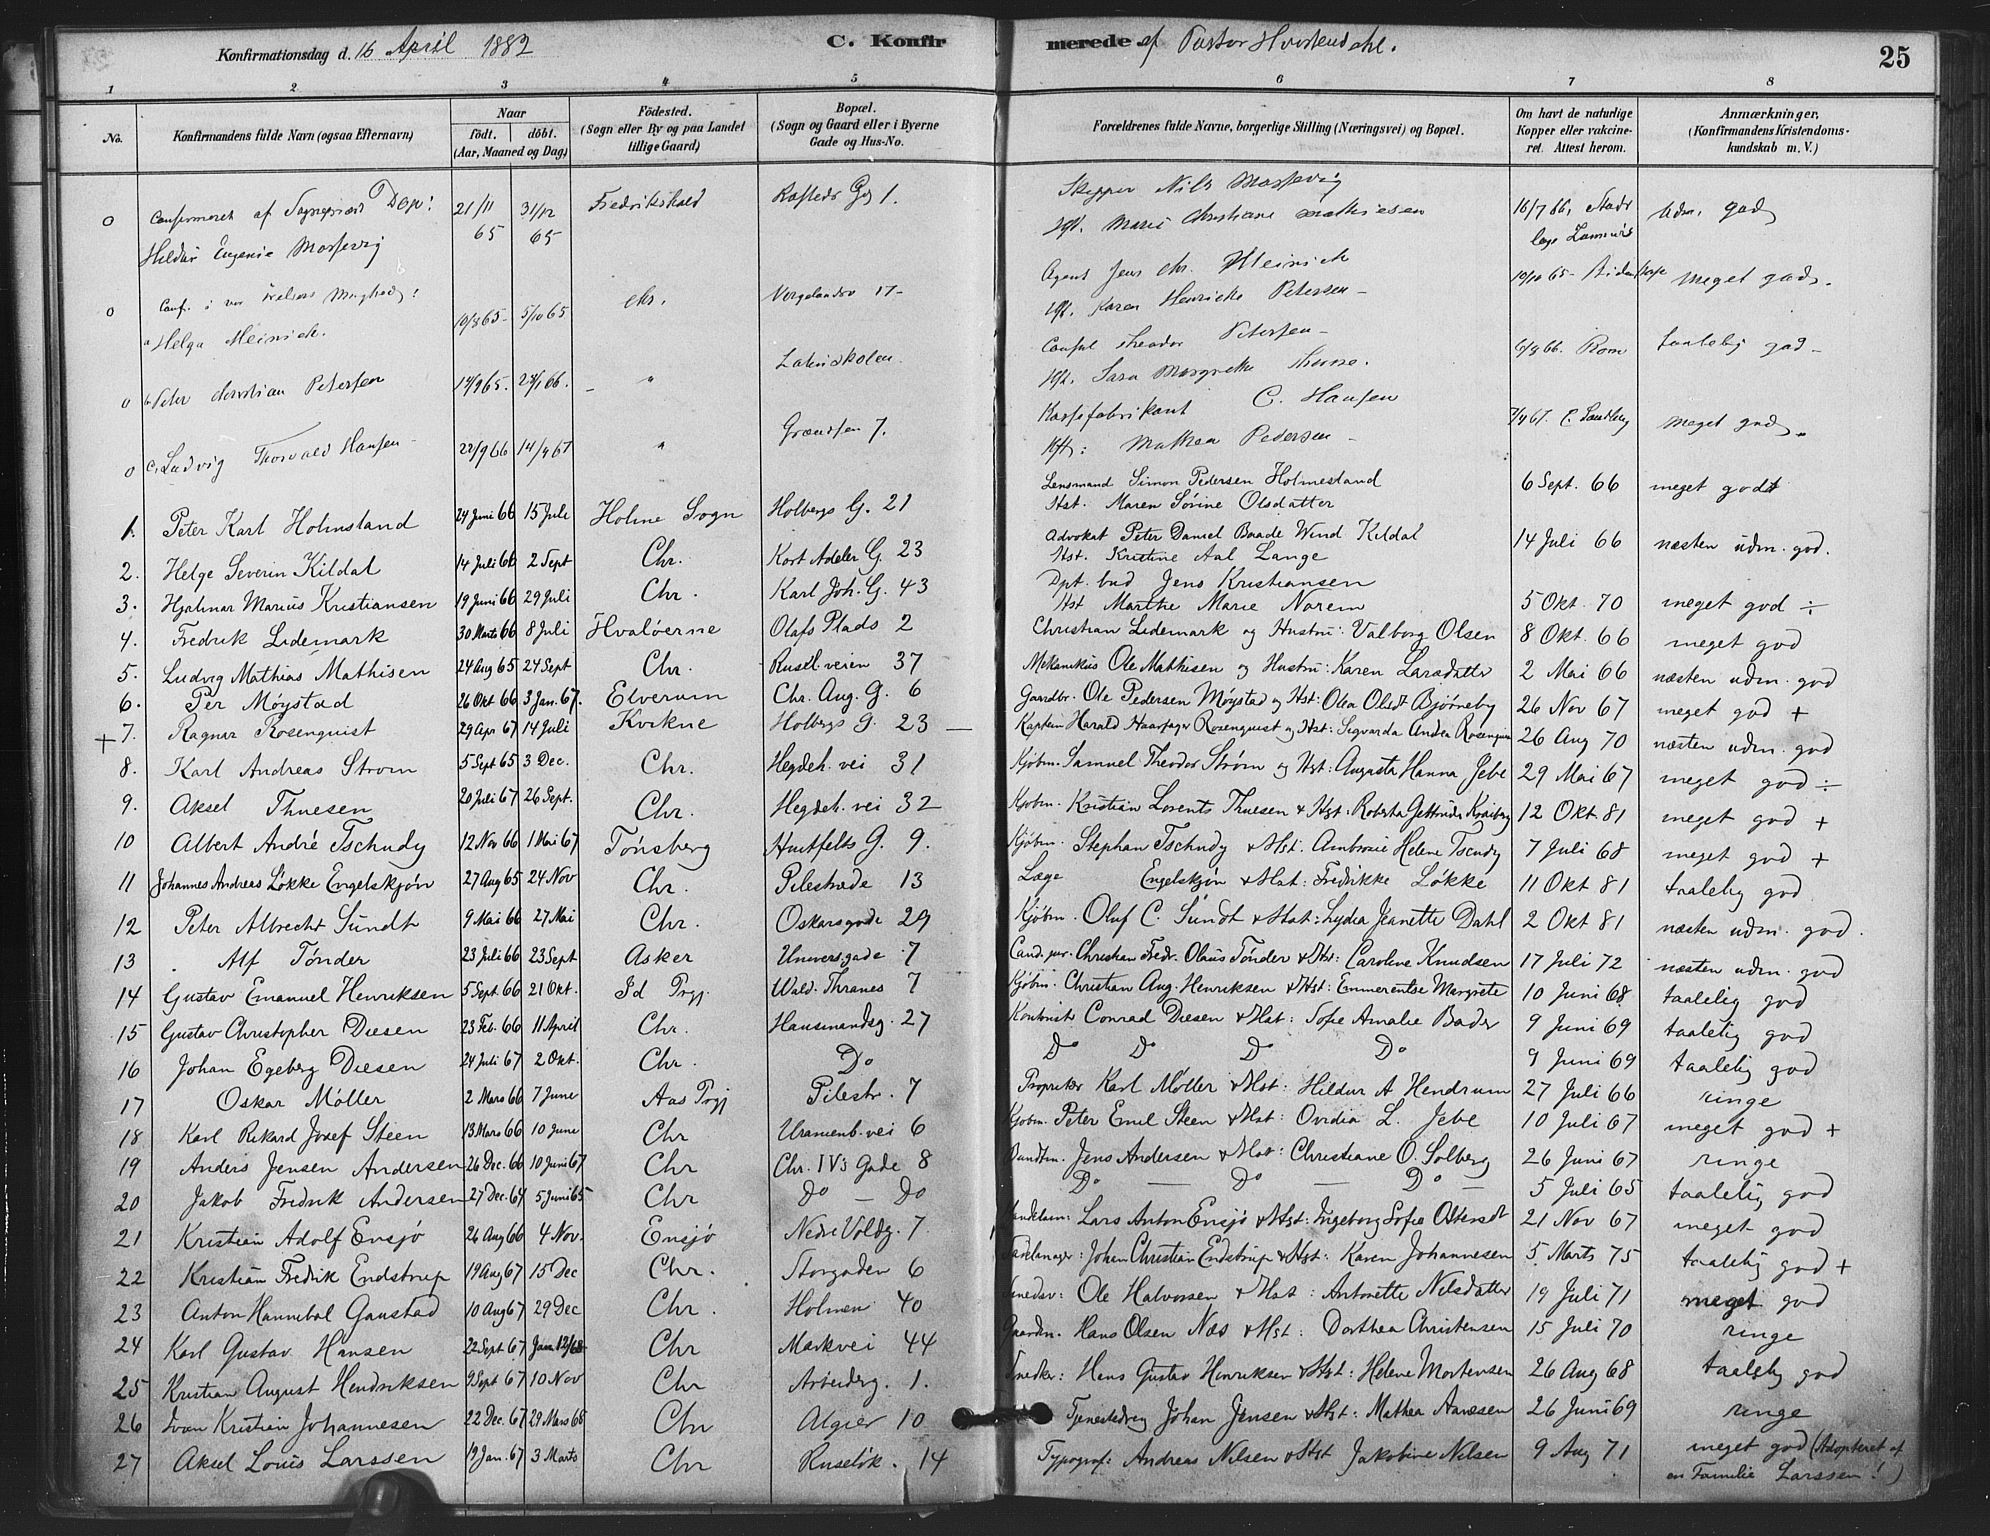 Konfirmationsdag d. 16 April 1882 C. Konfirmerede af Pastor Hvoslendahl. 25
1 2 3 4 5 6 7 8
No. Konfirmandens fulde Navn (ogsaa Efternavn) Naar födt. döbt. (Aar, Maaned og Dag) Födested. (Sogn eller By og paa Landet tillige Gaard) Bopæl. (Sogn og Gaard eller i Byerne Gade og Hus-No. Forældrenes fulde Navne, borgerlige Stilling (Næringsvei) og Bopæl. Om havt de naturlige Kopper eller vakcineret. Attest herom. Anmærkninger, (Konfirmandens Kristendomskundskab m. V.)
0 Confirmeret af Sognepræst Hildur Eugenie Mossevig 21/11 65 31/12 65 Fredrikshald 1. Skipper Nils Mossevig Marie Christiane Mathiesen 16/7 66, Udm. god
0 Conf. i Helga Heinrich. 10/8 65 5/10 65 Chr. 17 Agent Jens Chr. Heinrich Karen Henricke Petersen 19/10 65 meget god.
0 Peter Christian Petersen 14/9 65. 24/1 66. " Latinskolen Consul Theodor Petersen Sara Margrethe 6/9 66. taalelig god
0 Ludvig Thorvald Hansen 22/9 66 14/4 67 " Grændsen 7. C. Hansen Mathea Pedersen meget god.
1. Peter Karl Holmsland 24 Juni 66 15 Juli Holme Sogn Holbergs G. 21 Lensmand Simon Pedersen Holmesland Hst. Maren Sørine Olsdatter 6 Sept. 66 meget godt
2. Helge Severin Kildal 14 Juli 66 2 Sept Chr. Kort Adeler G. 23 Advokat Peter Daniel Baade Wind Kildal Hst. Kristine Aal Lange 14 Juli 66 næsten udm. god.
3. Hjalmar Marius Kristiansen 19 Juni 66 29 Juli Chr. Karl Joh. G. 43 Dpt. bud Jens Kristiansen Hst Marthe Marie Norem 5 Okt. 70 meget god ÷
4. Fredrik Lidemark 30 Marts 66 8 Juli Hvalöerne Olafs Plads 2 Christian Lidemark og Hustru: Valborg Olsen 8 Okt. 66 meget god
5. Ludvig Mathias Mathisen 24 Aug 65 24 Sept Chr. Rusel.veien 37 Mekanikus Ole Mathisen og Hustru: Karen Larsdatter 2 Mai 66 næsten udm. god
6. Per Möystad 26 Okt 66 3 Jan. 67. Elverum Chr. Aug. G. 6 Gaardbr. Ole Pedersen Möystad og Hst: Olea Olsdt Bjørneby 26 Nov 67 meget god +
+ 7. Ragnar Rosenquist 29 Apr 67 14 Juli Kvikne Holbergs G. 23 — Kaptein Harald Haarfager Rosenquist og Hst: Sigvarda Andrea Rosenquist 26 Aug 70 næsten udm. god
8. Karl Andreas Strøm 5 Sept 65 3 Dec. Chr. Hegdeh. vei 31 Kjøbm. Samuel Theodor Strøm og Hst: Augusta Hanna Jebe 29 Mai 67 meget god ÷
9. Aksel Thuesen 20 Juli 67 26 Sept. Chr. Hegdeh. vei 32 Kjøbm. Kristian Lorents Thuesen & Hst: Roberta Gertrude 12 Okt. 81 meget god +
10 Albert André Tschudy 12 Nov 66 1 Mai 67 Tönsberg Huitfelts G. 9. Kjøbm. Stephan Tschudy & Hst. Ambrosie Helene Tscudy 7 Juli 68 meget god +
11 Johannes Andreas Lökke Engelskjön 27 Aug 65 24 Nov Chr. Pilestræde 13 Læge Engelskjøn & Hst: Fredrikke Løkke 11 Okt 81 taalelig god
12 Peter Albrecht Sundt 9 Mai 66 27 Mai Chr. Oskarsgade 29 Kjøbm. Oluf C. Sundt & Hst: Lydia Jeanette Dahl 2 Okt 81 næsten udm. god.
13 Alf Tönder 23 Juli 66 23 Sept Asker Universgade 7 Cand. jur. Christian Fredr. Olaus Tønder & Hst: Caroline Knudsen 17 Juli 72 næsten udm. god
14 Gustav Emanuel Henriksen 5 Sept. 66 21 Okt. Id Prgj. Wald. Thranes 7 Kjøbm. Christian Aug. Henriksen & Hst: Emmerentse Margrete 10 Juni 68 taalelig god
15 Gustav Christopher Diesen 23 Feb. 66 11 April Chr. Hausmandsg. 27 Kontorist Conrad Diesen & Hst: Sofie Amalie Bader 9 Juni 69 taalelig god
16 Johan Egeberg Diesen 24 Juli 67 2 Okt. Chr. Do Do Do Do Do 9 Juni 69 taalelig god
17 Oskar Möller 2 Mars 66 7 June Aas Prgj Pilestr. 7 Proprietær Karl Møller & Hst: Hildur A Hendrum 27 Juli 66 ringe
18 Karl Rikard Josef Steen 13 Mars 66 10 June Chr Uranienb. vei 6 Kjøbm. Peter Emil Steen & Hst: Ovidia L. Jebe 10 Juli 67 meget god +
19 Anders Jensen Andersen 26 Dec. 66 10 Juni 67 Chr Chr. IVs Gade 8 Jens Andersen & Hst: Christiane O. Solberg 26 Juni 67 ringe
20 Jakob Fredrik Andersen 27 Dec. 64 5 Juni 65 Chr Do — Do Do — Do — Do — 5 Juli 65 taalelig god
21 Kristian Adolf Ensjö 26 Aug 66 4 Nov. Ensjö Nedre Voldg. 7 Lars Anton Ensjø & Hst: Ingeborg Sofie Olsersdt 21 Nov 67 meget god
22 Kristian Fredrik Endstrup 19 Aug 67 15 Dec Chr. Storgaden 6 Johan Christian Endstrup & Hst: Karen Johannesen 5. Marts 75 taalelig god +
23 Anton Hannibal Ganstad 10 Aug 67 29 Dec Chr. Holmen 40 Ole Halvorsen & Hst: Antonette Nilsdatter 19 Juli 71 meget god
24 Karl Gustav Hansen 22 Sept 67 Jan. 12/68 Chr Markvei 44 Hans Olsen Næs & Hst: Dorthea Christensen 15 Juli 70 ringe
25 Kristian August Hendriksen 9 Sept 67 10 Nov Chr Arbeiderg. 1. Snedker: Hans Gustav Henriksen & Hst: Helene Mortensen 26 Aug 68 taalelig god
26 Ivan Kristian Johannesen 22 Dec. 67 29 Mars 68 Chr Algier 10 Tjenestedreng Johan Jensen & Hst: Mathea Aanesen 26 Juni 69 ringe
27 Aksel Louis Larssen 19 Jan. 67 3 Marts Chr Ruselök. 14 Typograf: Andreas Nilsen & Hst Jakobine Nilsen 9 Aug 71 meget god (Adopteret af en Familie Larssen!)